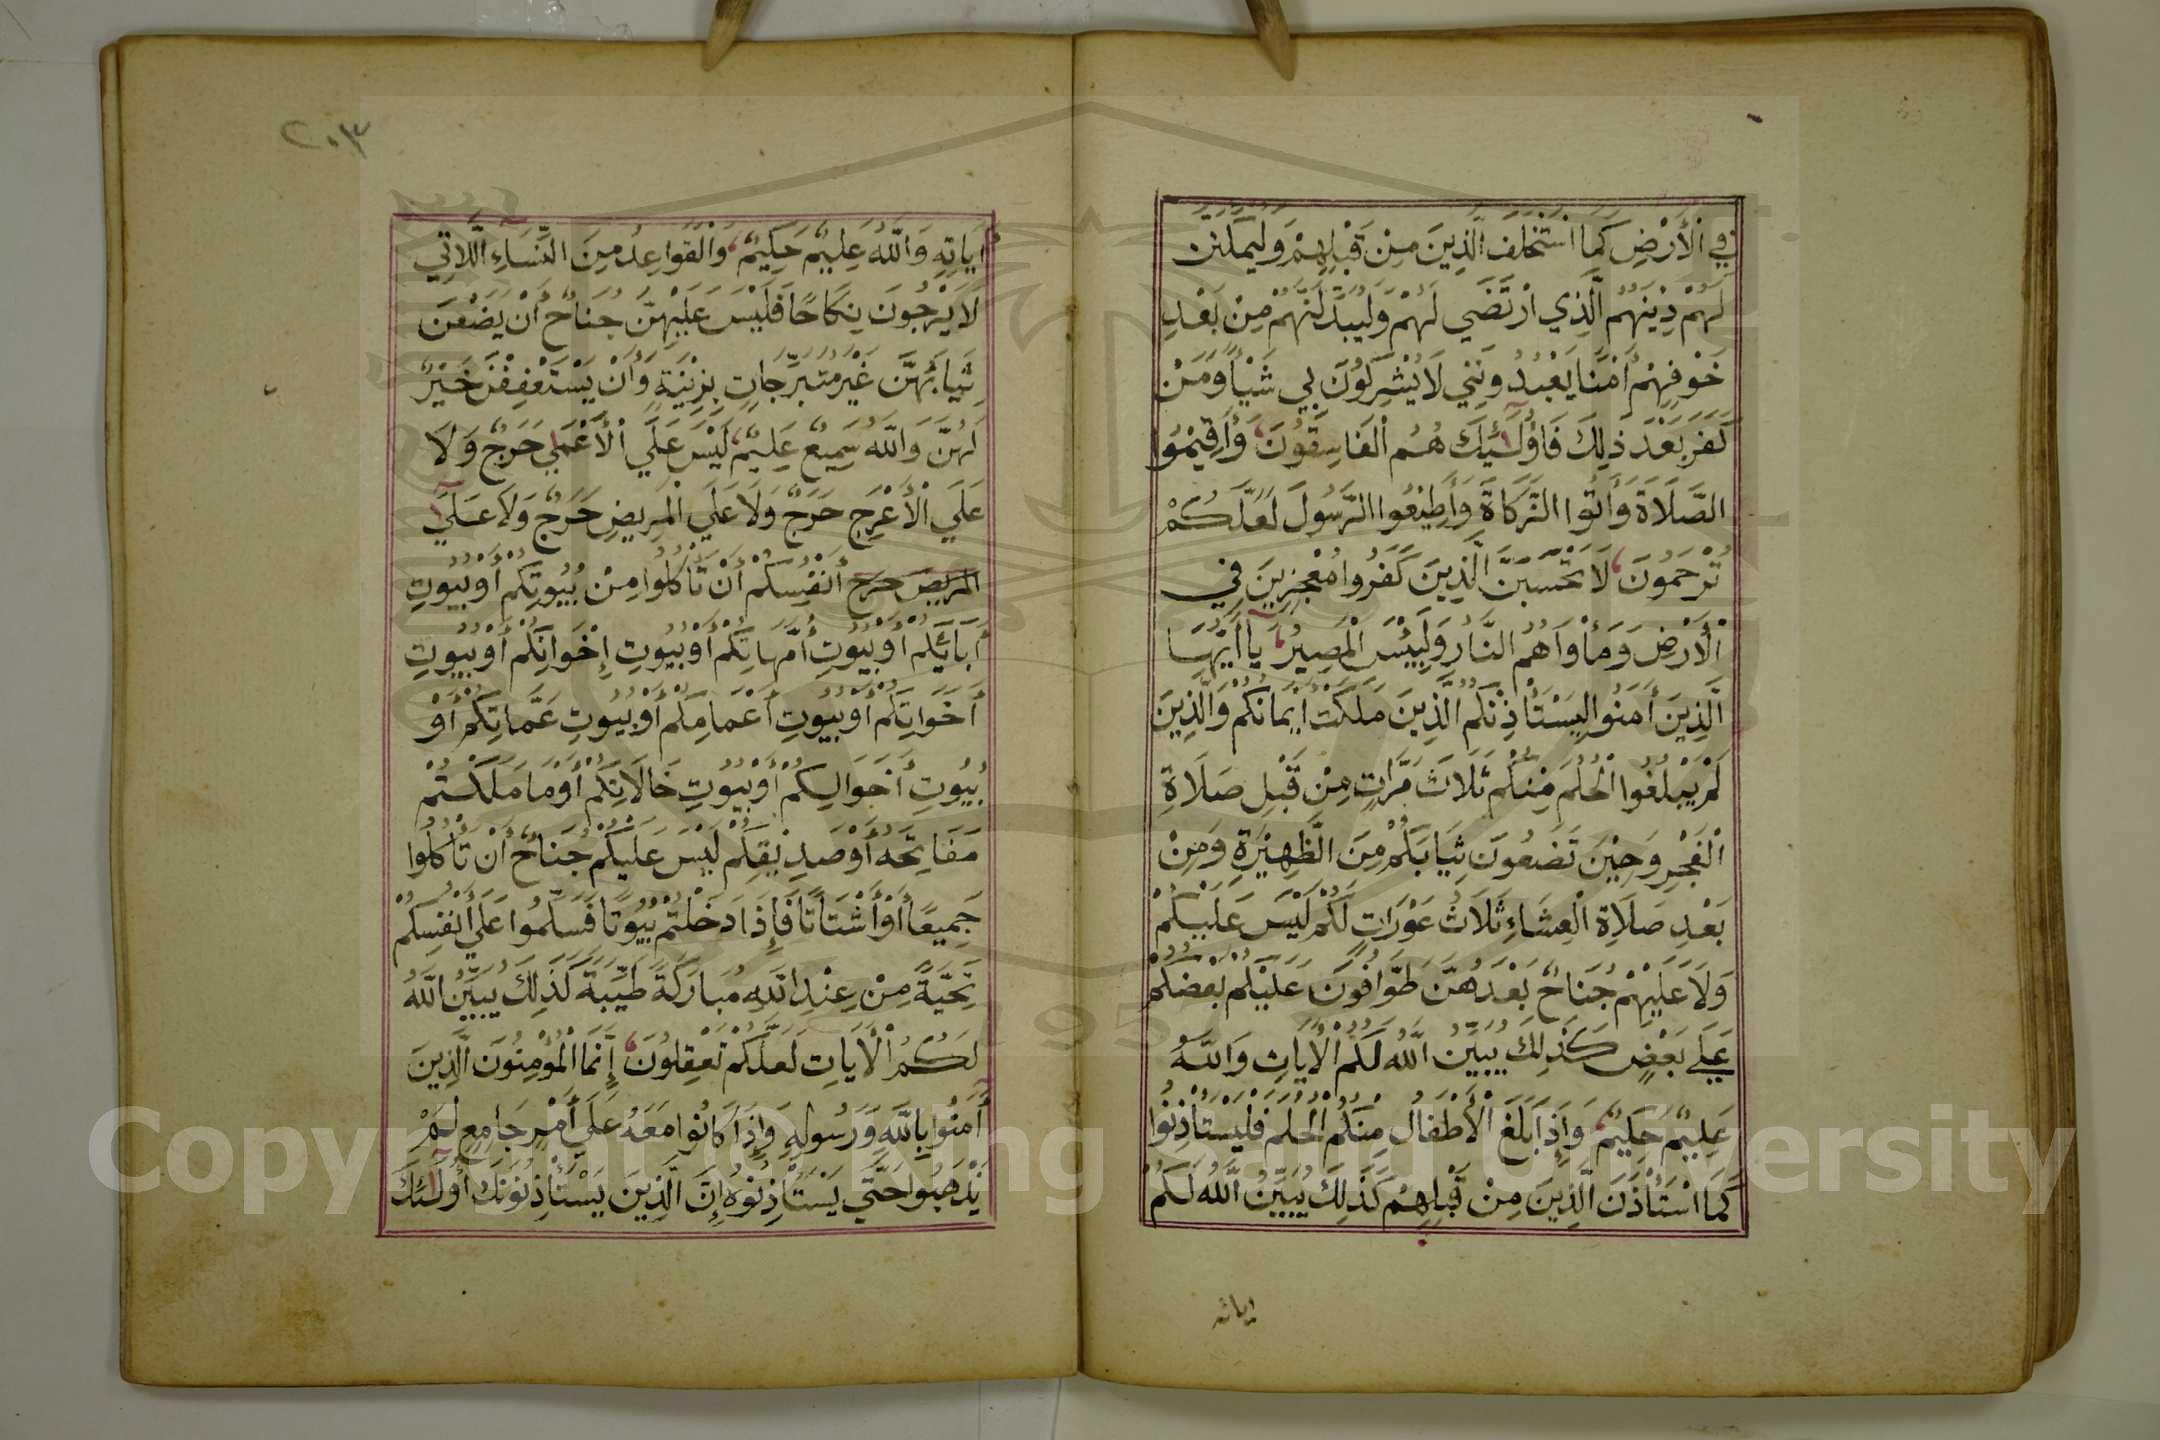 فِي الْأَرْضِ كَمَا اسْتَخْلَفَ الَّذِينَ مِنْ قَبْلِهِمْ وَلَيُمَكِّنَنَّ
لَهُمْ دِينَهُمُ الَّذِي ارْتَضَى لَهُمْ وَلَيُبَدِّلَنَّهُمْ مِنْ بَعْدِ
خَوْفِهِمْ أَمْنًا يَعْبُدُونَنِي لَا يُشْرِكُونَ بِي شَيْأً وَمَنْ
كَفَرَ بَعْدَ ذَلِكَ فَأُولَئِكَ هُمُ الْفَاسِقُونَ وَأَقِيمُوا
الصَّلَاةَ وَأَتُوا الزَّكَاةَ وَأَطِيعُوا الرَّسُولَ لَعَلَّكُمْ
تُرْحَمُونَ لَا تَحْسَبَنَّ الَّذِينَ كَفَرُوا مُعْجِزِينَ فِي
الْأَرْضِ وَمَأْوَاهُمُ النَّارُ وَلَبِئْسَ الْمَصِيرُ يَا أَيُّهَا
الَّذِينَ أَمَنُوا لِيَسْتَأْذِنَكُمُ الَّذِينَ مَلَكَتْ أَيْمَانُكُمْ وَالَّذِينَ
لَمْ يَبْلُغُوا الْحُلُمَ مِنْكُمْ ثَلَاثَ مَرَّاتٍ مِنْ قَبْلِ صَلَاةِ
الْفَجْرِ وَحِينَ تَضَعُونَ ثِيَابَكُمْ مِنَ الظَّهِيرَةِ وَمِنْ
بَعْدِ صَلَاةِ الْعِشَاءِ ثَلَاثُ عَوْرَاتٍ لَكُمْ لَيْسَ عَلَيْكُمْ
وَلَا عَلَيْهِمْ جُنَاحٌ بَعْدَهُنَّ طَوَّافُونَ عَلَيْكُمْ بَعْضُكُمْ
عَلَى بَعْضٍ كَذَلِكَ يُبَيِّنُ اللَّهُ لَكُمُ الْأَيَاتِ وَاللَّهُ
عَلِيمٌ حَكِيمٌ وَإِذَا بَلَغَ الْأَطْفَالُ مِنْكُمُ الْحُلُمَ فَلْيَسْتَأْذِنُوا
كَمَا اسْتَأْذَنَ الَّذِينَ مِنْ قَبْلِهِمْ كَذَلِكَ يُبَيِّنُ اللَّهُ لَكُمْ
اياته
٢٠٣
أَيَاتِهِ وَاللَّهُ عَلِيمٌ حَكِيمٌ وَالْقَوَاعِدُ مِنَ النِّسَاءِ اللَّاتِي
لَا يَرْجُونَ نِكَاحًا فَلَيْسَ عَلَيْهِنَّ جُنَاحٌ أَنْ يَضَعْنَ
ثِيَابَهُنَّ غَيْرَ مُتَبَرِّجَاتٍ بِزِينَةٍ وَأَنْ يَسْتَعْفِفْنَ خَيْرٌ
لَهُنَّ وَاللَّهُ سَمِيعٌ عَلِيمٌ لَيْسَ عَلَى الْأَعْمَى حَرَجٌ وَلَا
عَلَى الْأَعْرَجِ حَرَجٌ وَلَا عَلَى الْمَرِيضِ حَرَجٌ وَلَا عَلَى
المريض حرج أَنْفُسِكُمْ أَنْ تَأْكُلُوا مِنْ بُيُوتِكُمْ أَوْ بُيُوتِ
أَبَائِكُمْ أَوْ بُيُوتِ أُمَّهَاتِكُمْ أَوْ بُيُوتِ إِخْوَانِكُمْ أَوْ بُيُوتِ
أَخَوَاتِكُمْ أَوْ بُيُوتِ أَعْمَامِكُمْ أَوْ بُيُوتِ عَمَّاتِكُمْ أَوْ
بُيُوتِ أَخْوَالِكُمْ أَوْ بُيُوتِ خَالَاتِكُمْ أَوْ مَا مَلَكْتُمْ
مَفَاتِحَهُ أَوْ صَدِيقِكُمْ لَيْسَ عَلَيْكُمْ جُنَاحٌ أَنْ تَأْكُلُوا
جَمِيعًا أَوْ أَشْتَاتًا فَإِذَا دَخَلْتُمْ بُيُوتًا فَسَلِّمُوا عَلَى أَنْفُسِكُمْ
تَحِيَّةً مِنْ عِنْدِ اللَّهِ مُبَارَكَةً طَيِّبَةً كَذَلِكَ يُبَيِّنُ اللَّهُ
لَكُمُ الْأَيَاتِ لَعَلَّكُمْ تَعْقِلُونَ إِنَّمَا الْمُؤْمِنُونَ الَّذِينَ
أَمَنُوا بِاللَّهِ وَرَسُولِهِ وَإِذَا كَانُوا مَعَهُ عَلَى أَمْرٍ جَامِعٍ لَمْ
يَذْهَبُوا حَتَّى يَسْتَأْذِنُوهُ إِنَّ الَّذِينَ يَسْتَأْذِنُونَكَ أُولَئِكَ
Copyright © King Saud University